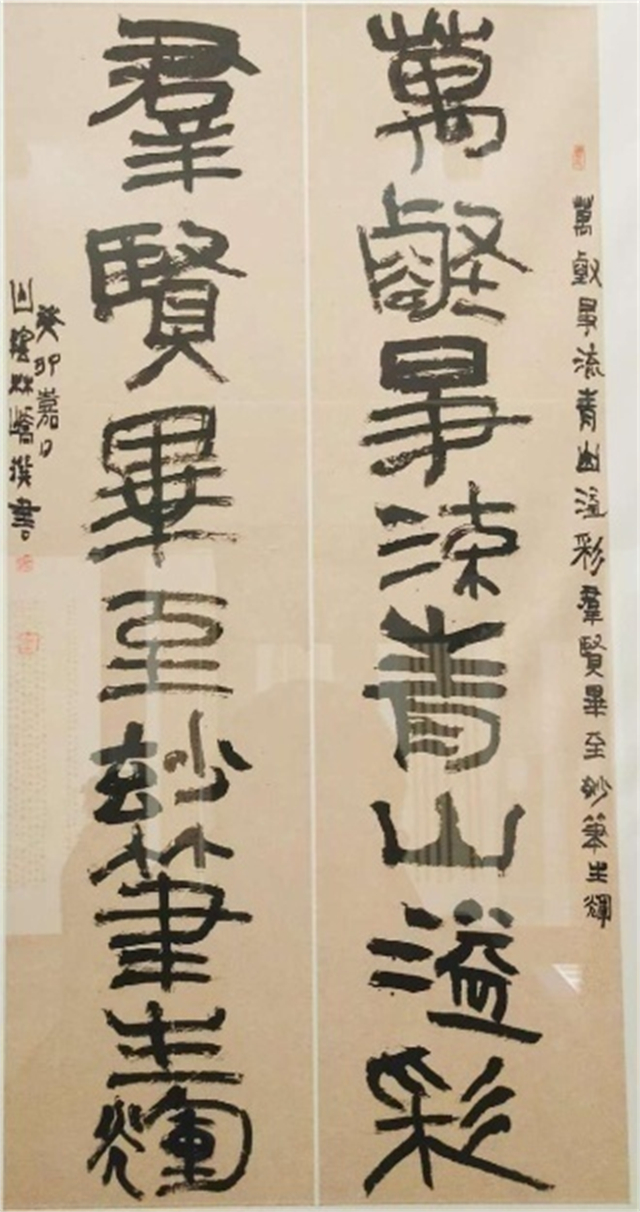 萬壑爭流青山溢彩羣賢畢至玅筆生輝
萬壑爭流青山溢彩
羣賢畢至玅筆生輝
癸卯嘉月
山陰林嶠撰書